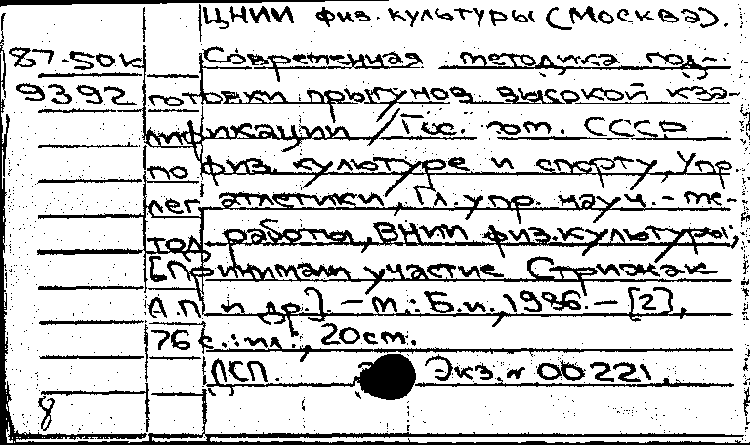 ЦНИИ физ. культуры (Москва).
87-50к Современная методика под-
9392 готовки прыгунов высокой ква-
лификации / Гос. ком. СССР
по физ. культуре и спорту, Упр
лег. атлетики, Гл. упр. науч.-ме-
тод. работы, ВНИИ физ. культуры;
[Принимали участие Стрижак
А.П и др.] - М.: Б.и., 1986. - [2],
76 с.: ил.; 20 см.
ДСП. Экз. N 00221.
8